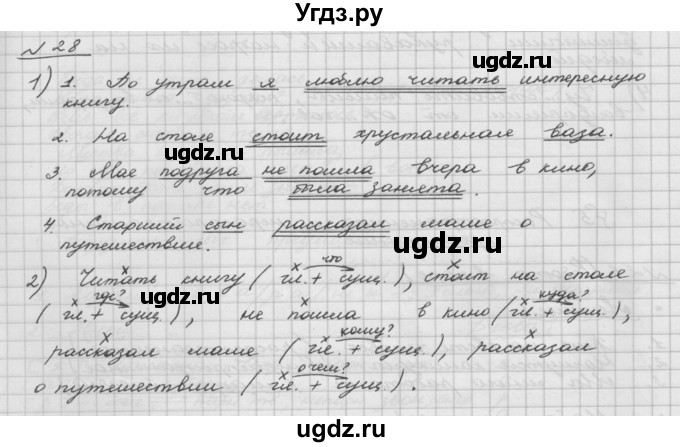 Угдз.ру
№ 28
1) 1. По утрам я люблю читать интересную
книгу.
ugdz.ru ugdz.ru
2. На столе стоит хрустальная ваза.
ugdz.ru ugdz.ru
3. Моя подруга не пошла вчера в кино,
потому что была занята.
ugdz.ru ugdz.ru
4. Старший сын рассказал маме о
путешествие.
ugdz.ru ugdz.ru
2) Читать книгу (гл. + сущ.), стоит на столе
что
(гл. + сущ.), не пошла в кино (гл. + сущ.),
где? куда?
рассказал маме (гл. + сущ.), рассказал
кому?
о путешествии (гл. + сущ.).
о чём?
ugdz.ru ugdz.ru